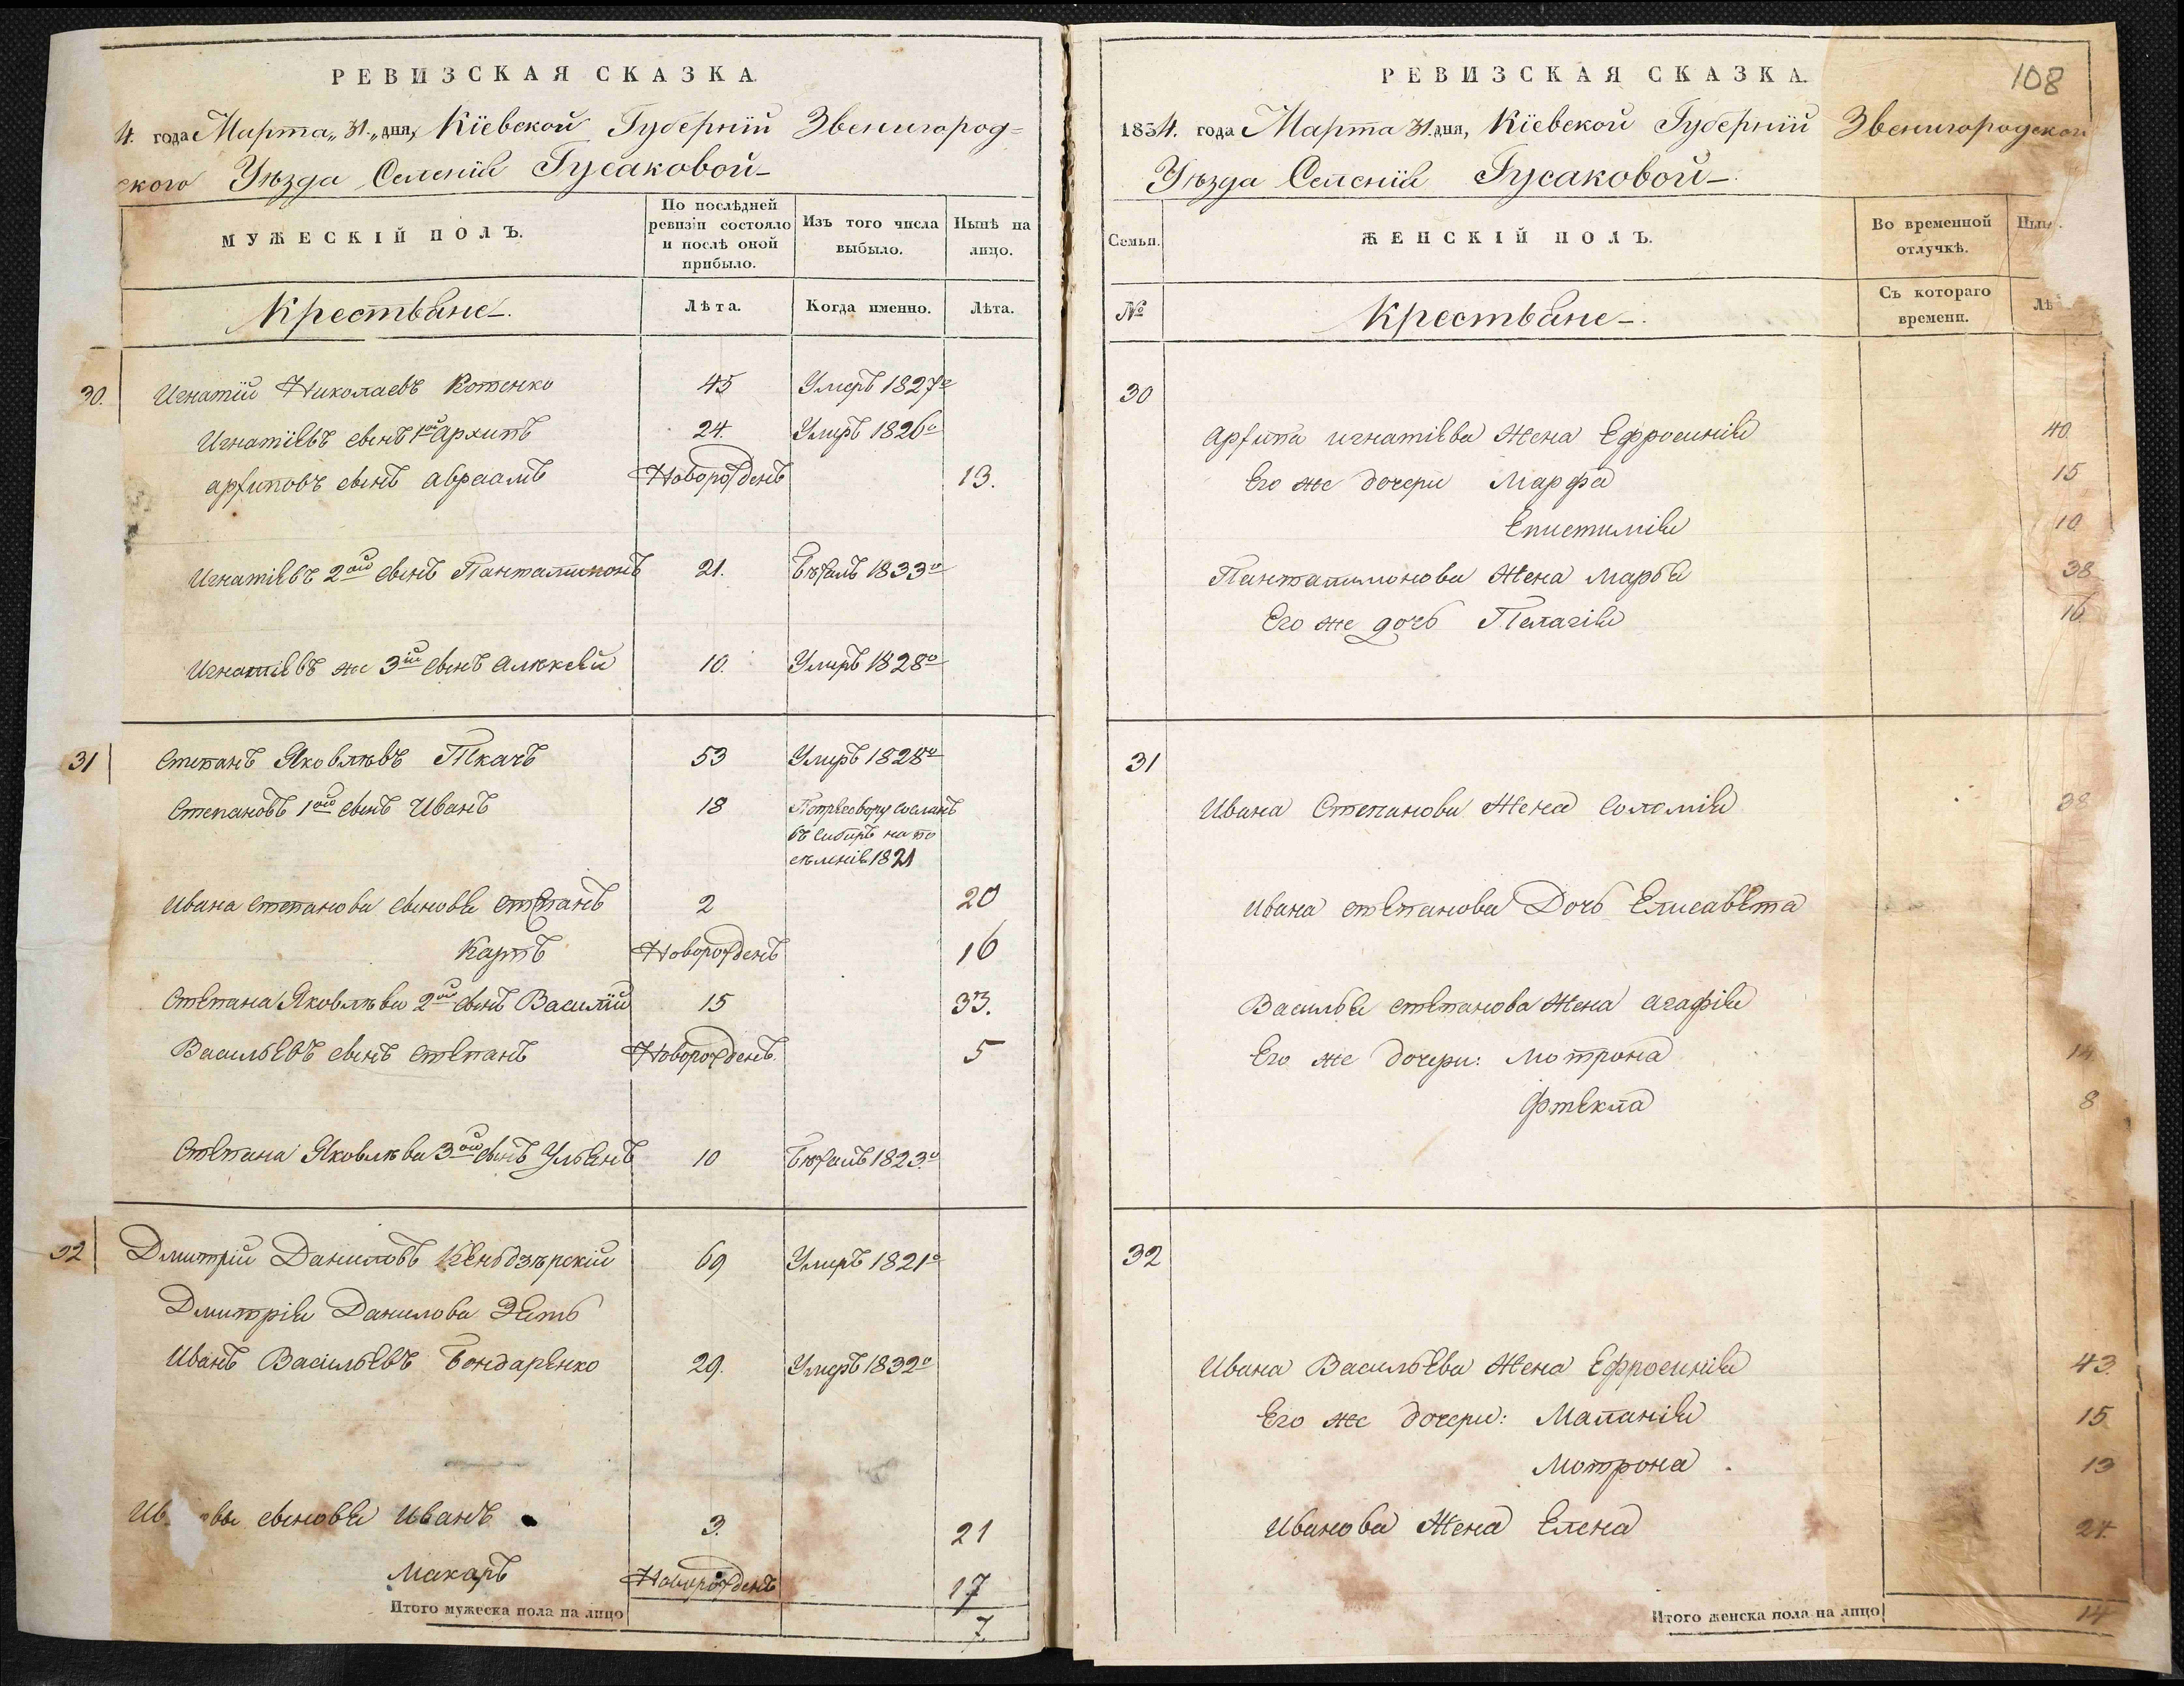 РЕВИЗСКАЯ СКАЗКА
4. года Марта „31„ дня, Кіевской Губерніи Звенигород=
ского Уѣзда Селенія Гусаковой
МУЖЕСКІЙ ПОЛЪ.
По послѣдней ревизіи состояло и послѣ оной прибыло.
Изъ того числа выбыло.
Нынѣ на лицо.
Крестьяне.
Лѣта.
Когда именно.
Лѣта.
30. Игнатій Николаевъ Котенко 45 Умеръ 1827го
Игнатіевъ сынъ 1ой Архипъ 24. Умеръ 1826го
Архиповъ сынъ Авраамъ Новорожденъ 13.
Игнатіевъ 2ой сынъ Панталимонъ 21. Бѣжалъ 1833го
Игнатіевъ же 3ій сынъ Алексѣй 10. Умеръ 1828го
31 Степанъ Яковлѣвъ Ткачъ 53 Умеръ 1828го
Степановъ 1ой сынъ Иванъ 18 сосланъ
въ Сибирь на по
сѣленіе 1821
Ивана Степанова сыновья Степанъ 2 20
Карпъ Новорожденъ 16
Степана Яковлѣва 2ой сынъ Василій 15 33.
Васильевъ сынъ Степанъ Новорожденъ. 5
Степана Яковлѣва 3ой сынъ Ульянъ 10 Бѣжалъ 1823го
32 Дмитрій Даниловъ 69 Умеръ 1821го
Дмитрія Данилова Зять
Иванъ Васильевъ Бондаренко 29. Умеръ 1832го
Ив овы сыновья Иванъ 3. 21
Макаръ Новорожденъ 17
Итого мужеска пола на лицо 7.
108
РЕВИЗСКАЯ СКАЗКА.
1834. года Марта 31 дня, Кіевской Губерніи Звенигородской
Уѣзда Селенія Гусаковой
Семьи.
ЖЕНСКІЙ ПОЛЪ.
Во временной отлучкѣ.
Нын
№
Крестьяне.
Съ котораго времени.
Лѣ
30
Архипа Игнатіева жена Ефросинія 40
Его же дочери Марфа 15
Епистимія 10
Панталимонова жена Марья 38
Его же дочь Пелагія 16
31
Ивана Степанова жена Соломія 38
Ивана Степанова Дочь Елисавета
Василья Степанова жена Агафія
Его же дочери: Мотрона 14
Фтекла 8
32
Ивана Васильева жена Ефросинія 43.
Его же дочери: Маланія 15
Мотрона 13
Иванова жена Елена 24.
Итого женска пола на лицо 14